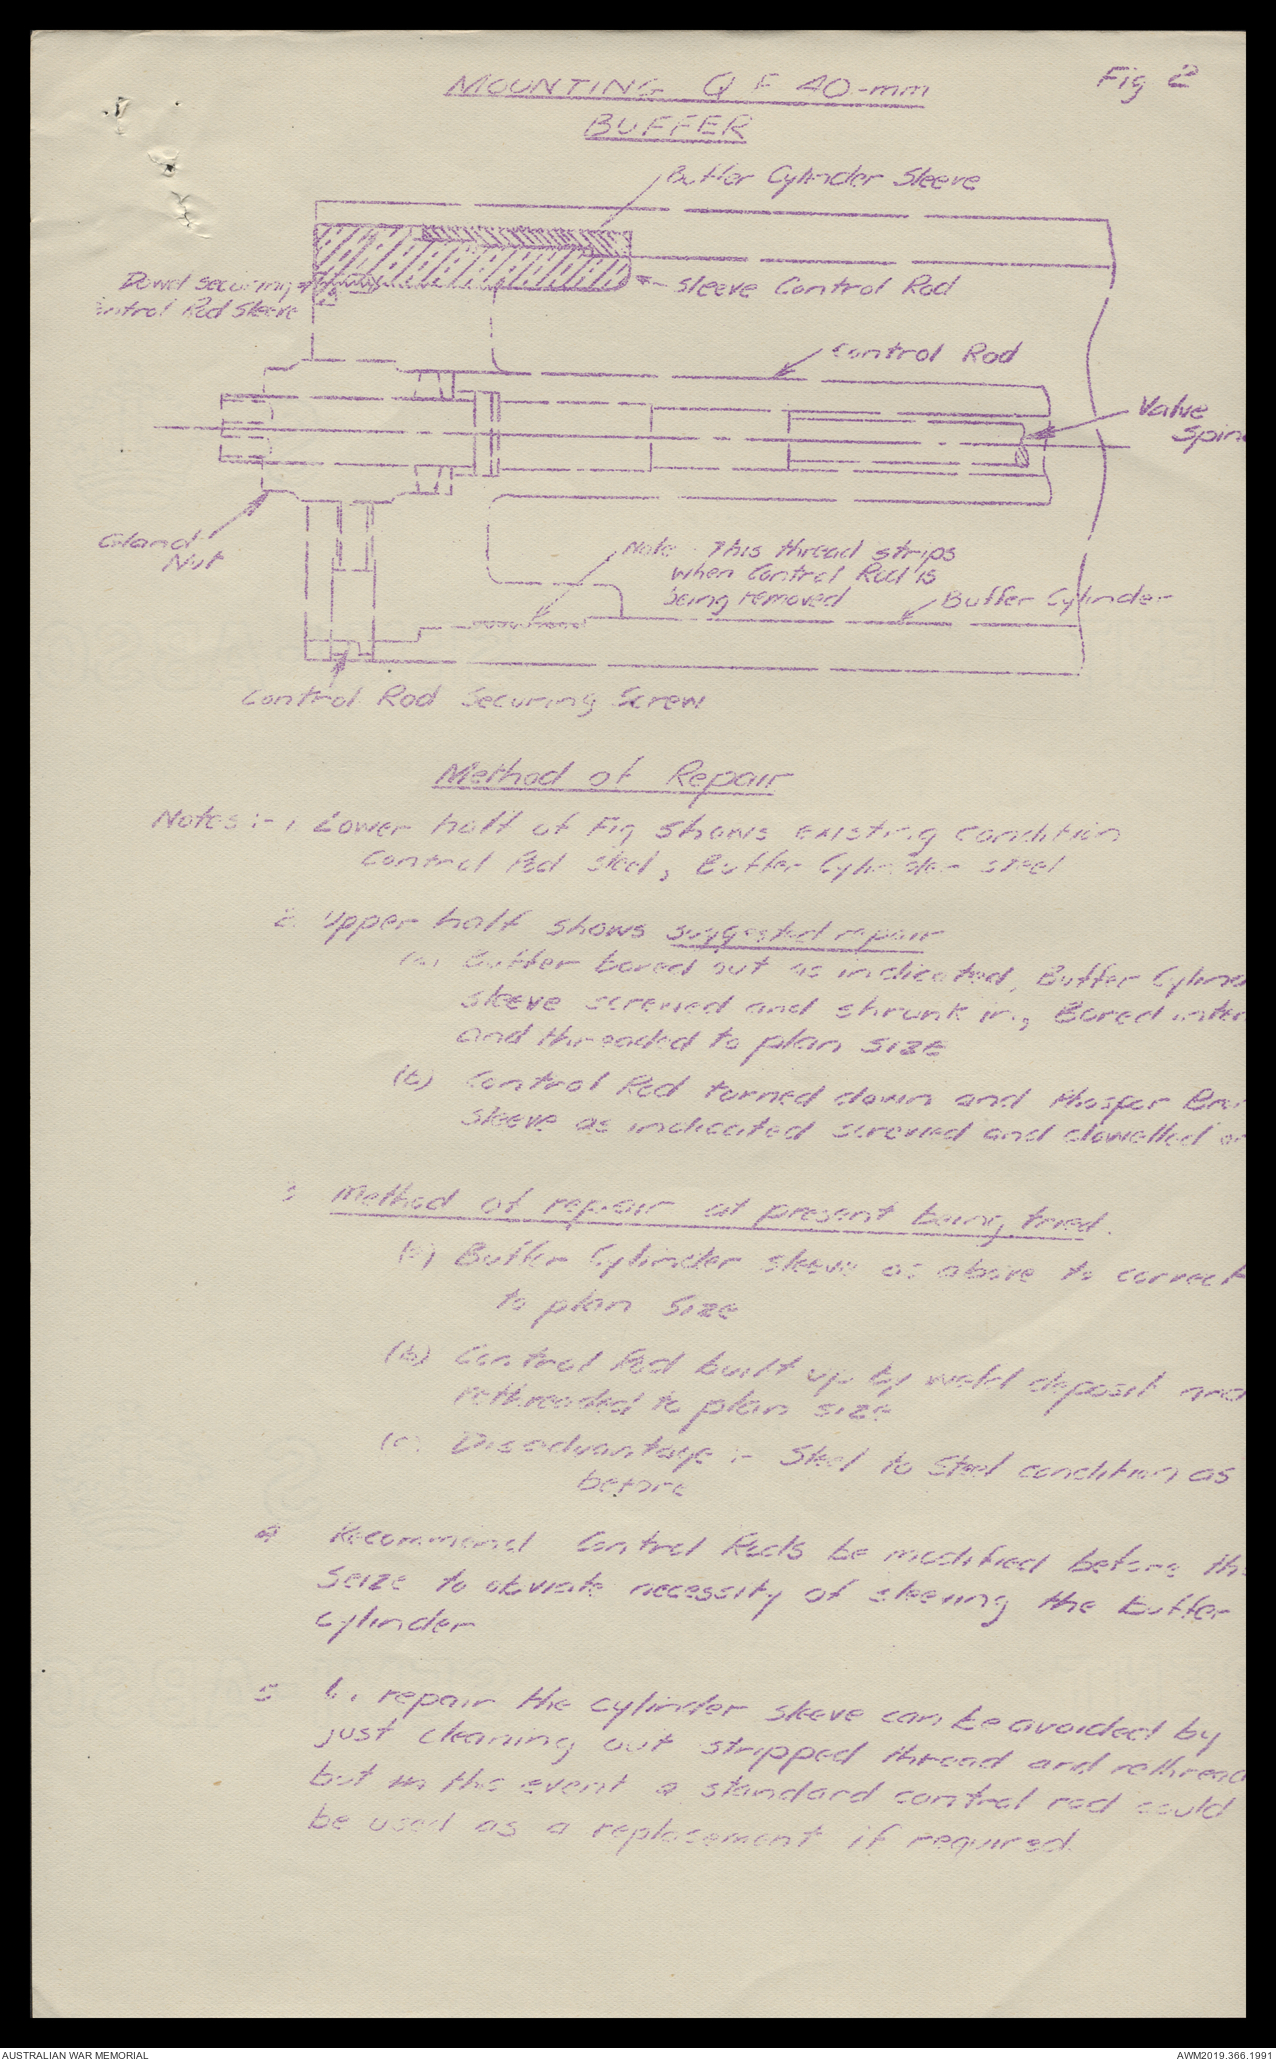 MOUNTING Q F 40-mm
Fig 2
BUFFER
Buffer Cylinder Sleeve
Dowel securing
ntrol Rod Sleeve
Sleeve Control Rod
Control Rod
Valve
Spin
Gland
Nut
Note This thread strips
when Control Rod is
being removed
Buffer Cylinder
Control Rod Securing Screw
Method of Repair
Notes:- 1. Lower half of Fig shows existing condition
Control Rod steel, Buffer Cylinder steel
2. Upper half shows suggested repair
(a) Buffer bored out as indicated, Buffer Cylind
sleeve screwed and shrunk in, Bored inter
and threaded to plan size
(b) Control Rod turned down and Phospor Bro
sleeve as indicated screwed and dowelled on
3 Method of repair at present being tried.
(a) Buffer Cylinder sleeve as above to correct
to plan size
(b) Control Rod built up by weld deposit and
rethreaded to plan size
(c) Disadvantage :- Steel to Steel condition as
before
4 Recommend Control Rods be modified before th
seize to obviate necessity of sleeving the buffer
cylinder
5 repair the cylinder sleeve can be avoided by
just cleaning out stripped thread and rethread
but in this event a standard control rod could
be used as a replacement if required.
AUSTRALIAN WAR MEMORIAL
AWM2019.366.1991